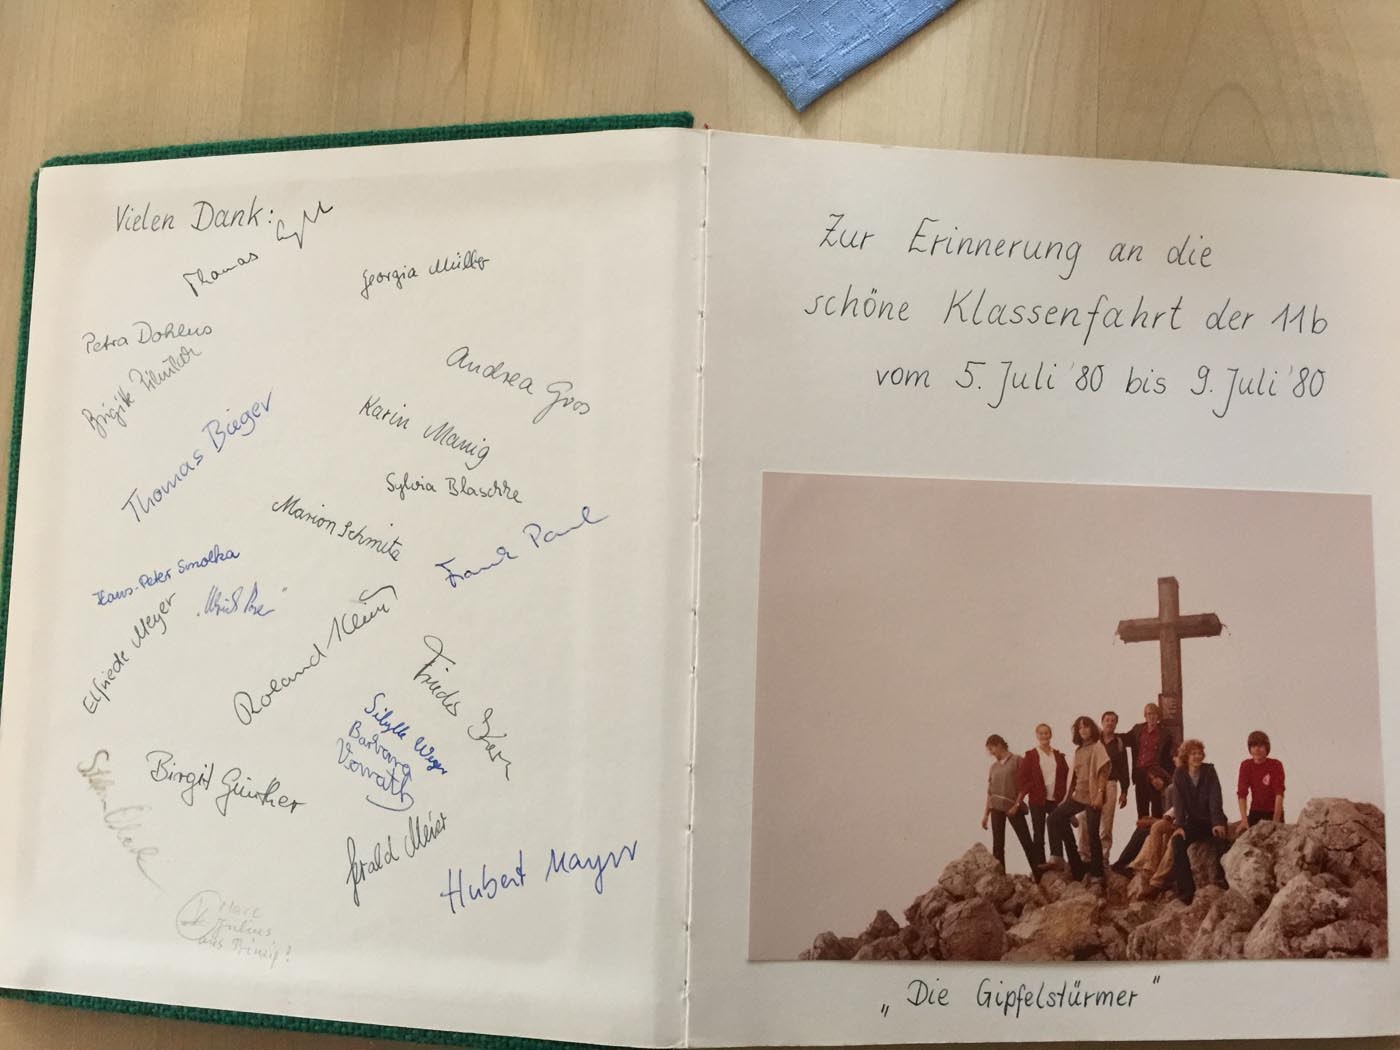 Vielen Dank:
Thomas
Georgia Müller
Petra Dohlus
Birgitt
Andrea Gros
Karin Manig
Thomas Bieger
Sylvia Blaschke
Marion Schmitz
Frank Paul
Hans-Peter Smolka
Elfriede Meyer
Roland Klein
Sibylle Weger
Barbara
Vorrath
Birgit Günther
Gerald Meier
Hubert Mayer
Marc
Julius
aus Prinzip!
Zur Erinnerung an die
schöne Klassenfahrt der 11b
vom 5. Juli '80 bis 9. Juli '80
„Die Gipfelstürmer"